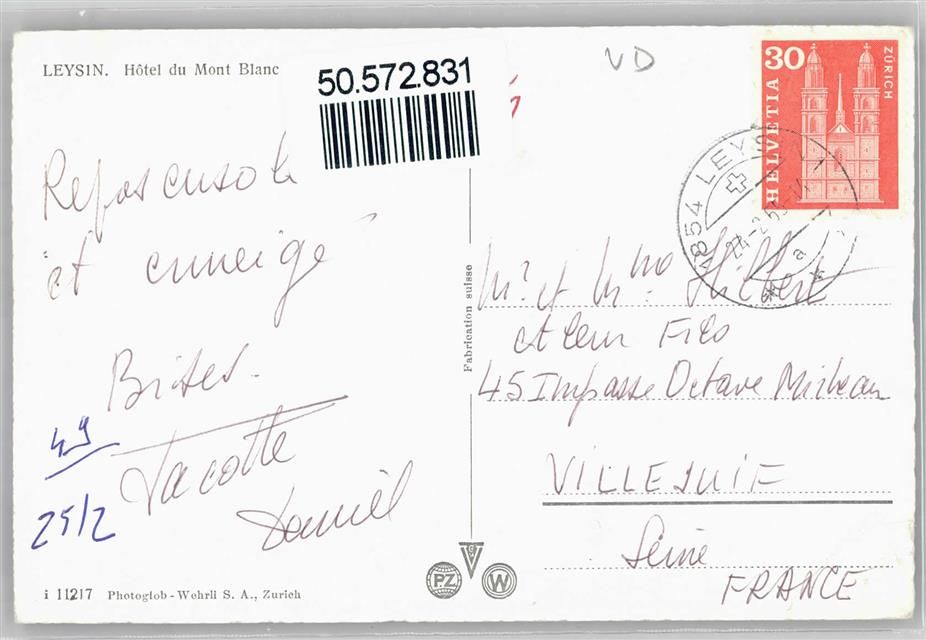 LEYSIN. Hôtel du Mont Blanc
50.572.831
VD
30
ZÜRICH
HELVETIA
1854 LEYSIN
et enneigé
Bises.
Lacotte
Daniel
49
25/2
Fabrication suisse
Mr. et Mme
et leur Fils
45 Impasse Octave Mirbeau
VILLEJUIF
Seine
FRANCE
PZ
W
i 11217 Photoglob-Wehrli S. A., Zurich